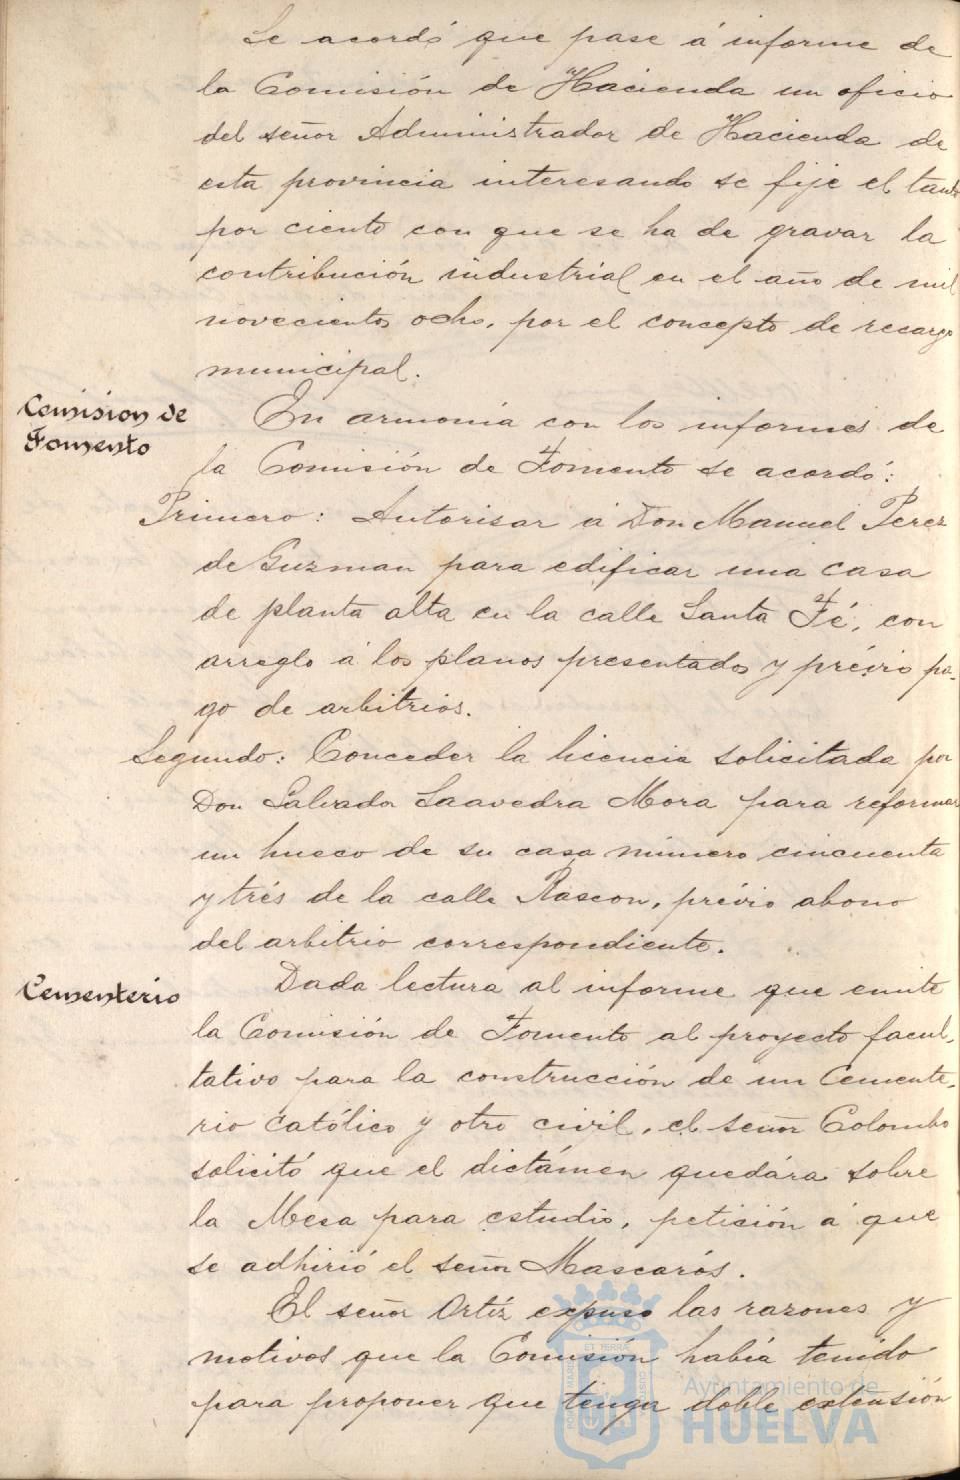 Se acordó que pase á informe de
la Comisión de Hacienda un oficio
del señor Administrador de Hacienda de
esta provincia interesando se fije el tanto
por ciento con que se ha de gravar la
contribución industrial en el año de mil
novecientos ocho, por el concepto de recargo
municipal.
Comision de
Fomento
En armonía con los informes de
la Comisión de Fomento se acordó:
Primero: Autorisar á Don Manuel Perez
de Guzman para edificar una casa
de planta alta en la calle Santa Fé, con
arreglo á los planos presentados y prévio pa-
go de arbitrios.
Segundo: Conceder la licencia solicitada por
Don Salvador Saavedra Mora para reformar
un hueco de su casa número cincuenta
y trés de la calle Rascon, prévio abono
del arbitrio correspondiente.
Cementerio
Dada lectura al informe que emite
la Comisión de Fomento al proyecto facul-
tativo para la construcción de un Cemente-
rio católico y otro civil, el señor Colombo
solicitó que el dictámen quedára sobre
la Mesa para estudio, petición á que
se adhirió el señor Mascarós.
El señor Ortíz expuso las razones y
motivos que la Comisión había tenido
para proponer que tenga doble extensión
Ayuntamiento de
HUELVA